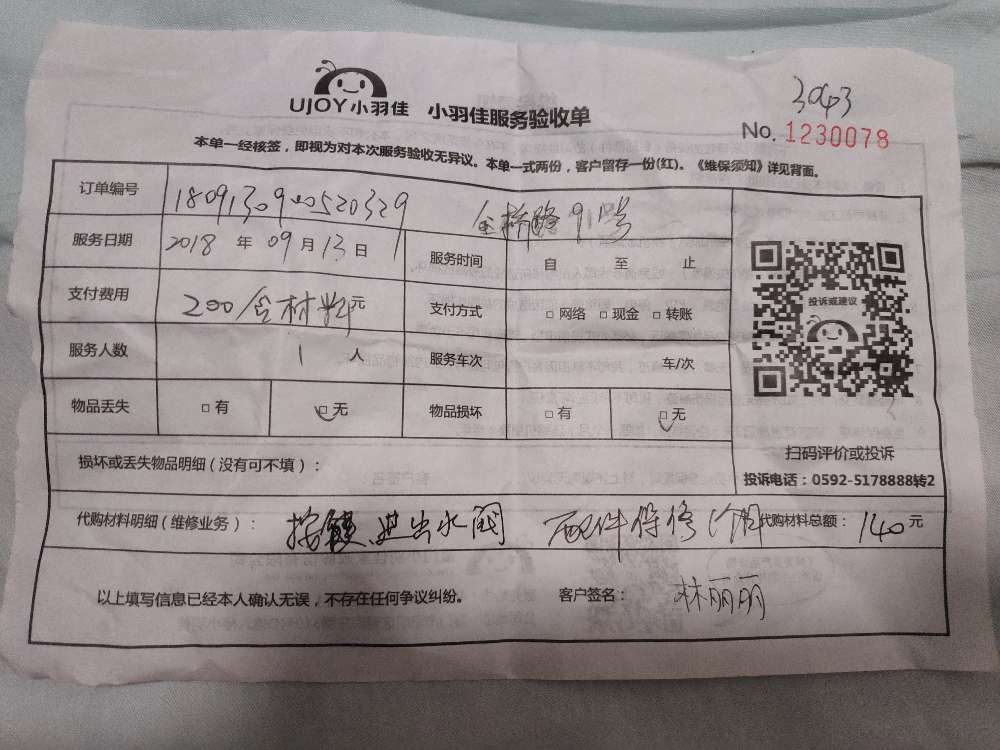 3043
UJOY小羽佳 小羽佳服务验收单
No. 1230078
本单一经核签，即视为对本次服务验收无异议。本单一式两份，客户留存一份(红)。《维保须知》详见背面。
订单编号 180913090520329
金桥路 号
服务日期 2018 年 09 月 13 日 服务时间 自 至 止
支付费用 200/含材料元 支付方式 □ 网络 □ 现金 □ 转账
投诉或建议
服务人数 1 人 服务车次 车/次
物品丢失 □ 有 □ 无 物品损坏 □ 有 □ 无
扫码评价或投诉
损坏或丢失物品明细（没有可不填）：
投诉电话：0592-5178888转2
代购材料明细（维修业务）： 按 进出水阀 配件保修 代购材料总额： 140 元
以上填写信息已经本人确认无误，不存在任何争议纠纷。 客户签名： 林丽丽